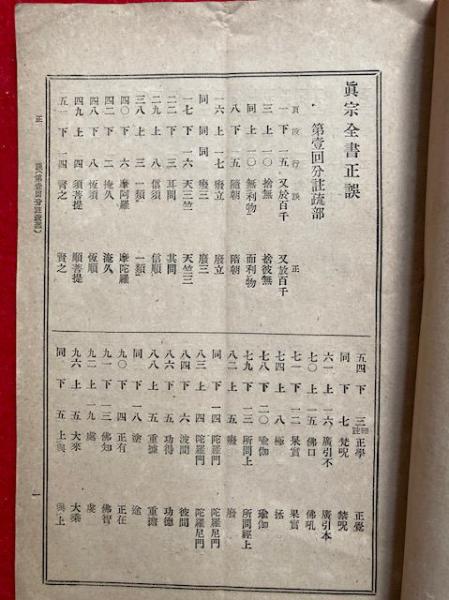 眞宗全書正誤
第壹回分註疏部
頁 段 行 誤 正
一 下 一五 又於百千 又放百千
三 上 一〇 捨無 捨彼無
同 上 一〇 無利物 而利物
八 下 五 隨朝 隋朝
一六 上 一七 廢立 廢立
同 同 同 廢三 廢三
一七 下 一六 天三竺 天竺三
二二 下 三 耳問 其問
二九 上 八 信須 信順
三八 上 三 一類 一類
四〇 下 六 摩阿羅 摩陀羅
四二 下 二 掩久 淹久
四八 下 八 恆須 恆順
四九 上 四 須菩提 順菩提
五一 下 一四 賢之
五四 下 三 正學 正覺
同 下 七 梵呪 禁呪
六一 上 一六 廣引不 廣引本
七〇 上 一五 佛口 佛吼
七一 下 一二 果實 果實
七四 上 八 極 拯
七八 下 二〇 瑜伽 瑜伽
七九 下 一三 所問上 所問經上
八二 上 五 廢 廢
同 下 一四 陀羅門 陀羅尼門
八三 上 四 陀羅門 陀羅尼門
八四 下 六 波間 彼間
八六 下 五 功得 功德
八八 上 五 重據 重擔
同 下 一八 塗 途
九〇 下 四 正有 正在
九一 下 一三 佛知 佛智
九二 上 一九 處 虔
九六 上 五 大來 大乘
同 下 五 上與 與上
正 誤(第壹回分註疏部)
一